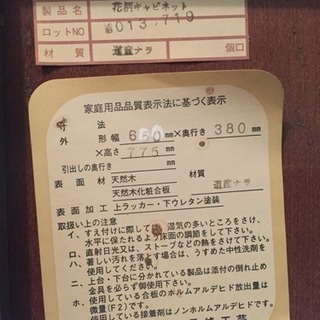 製品名 花梨キャビネット
ロットNO 013,719
材質 道産ナラ 個口
家庭用品品質表示法に基づく表示
寸法
外形幅 650mm×奥行き 380mm
×高さ 775mm
引出しの奥行き mm
表面材 天然木 材質
天然木化粧合板 道産ナラ
表面加工 上ラッカー・下ウレタン塗装
取扱い上の注意
イ、すえ付けに際しては、湿気の多いところをさけ、
水平に保たれるよう床面の調節をして下さい。
ロ、直射日光又は、ストーブなどの熱をさけて下さい。
ハ、著しい汚れを落とす場合は、うすめた中性洗剤を
使用してください。
ニ、上台・下台に分れている製品は添付の倒れ止め
金具を必ず御使用下さい。
ホ、使用している合板のホルムアルデヒド放出量は
微量(F2)です。
ヘ、使用している接着剤はノンホルムアルデヒドです。